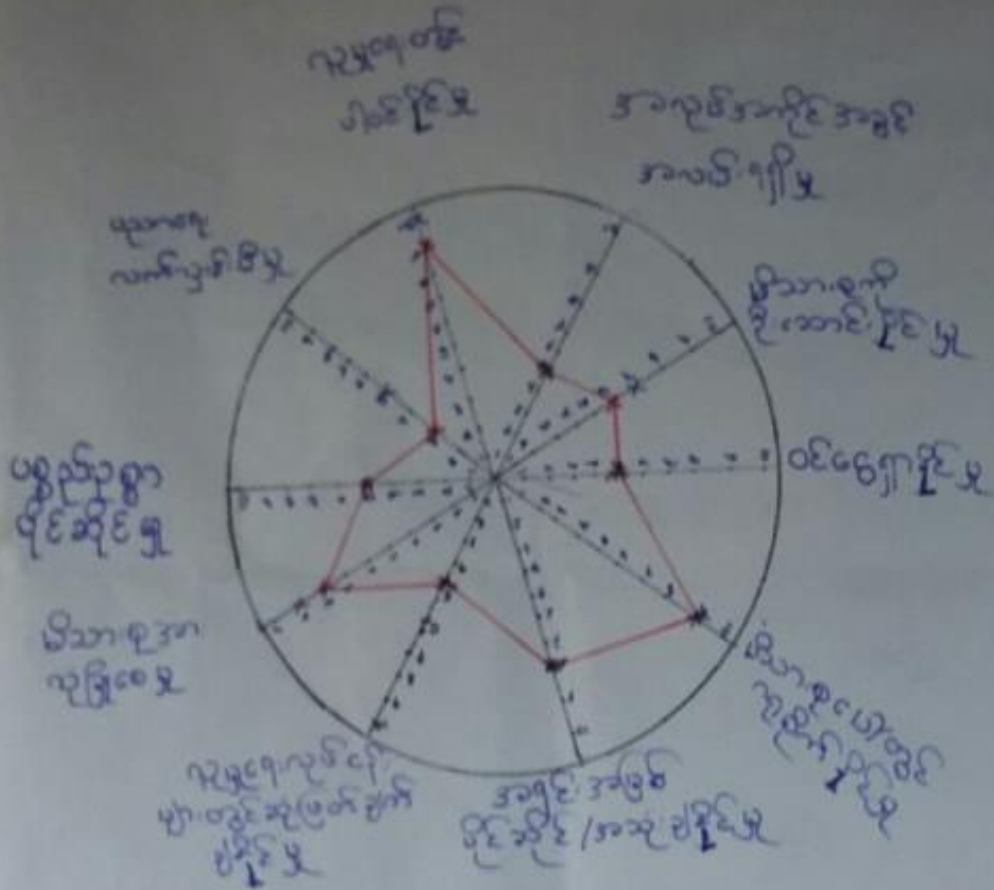 လူမှုရေးတွင်
ပါဝင်နိုင်မှု
အလုပ်အကိုင်အခွင့်
အလမ်းရရှိမှု
မိသားစုကို
ဦးဆောင်နိုင်မှု
ဝင်ငွေရှာနိုင်မှု
မိသားစုပေါ်တွင်
အရင်းအမြစ်
ပိုင်ဆိုင်/အသုံးချနိုင်မှု
လူမှုရေးလုပ်ငန်း
များတွင်ဆုံးဖြတ်ချက်
ချနိုင်မှု
မိသားစုအား
လုံခြုံစေမှု
ပစ္စည်ဥစ္စာ
ပိုင်ဆိုင်မှု
ပညာရေး
လက်လှမ်းမီမှု